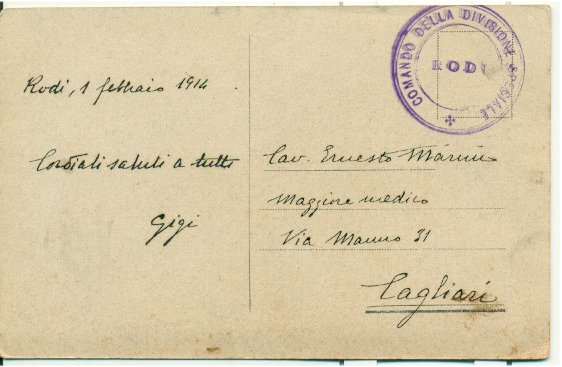 COMANDO DELLA DIVISIONE SPECIALE
RODI
Rodi, 1 febbraio 1914
Cordiali saluti a tutti
Gigi
Cav. Ernesto Marini
Maggiore medico
Via Manno 31
Cagliari